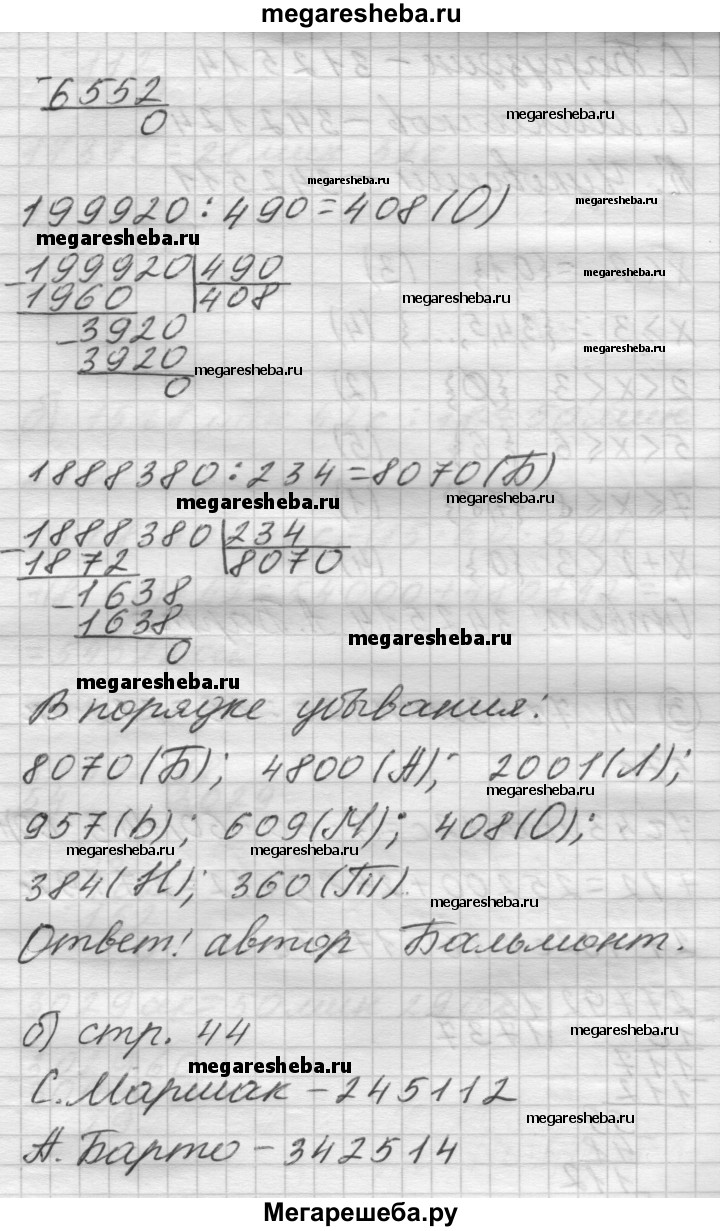 megaresheba.ru
- 6552
0
megaresheba.ru
megaresheba.ru
199920 : 490 = 408 (О)
megaresheba.ru
megaresheba.ru
- 199920 490
megaresheba.ru
1960 408
megaresheba.ru
- 3920
megaresheba.ru
3920
megaresheba.ru
0
1888380 : 234 = 8070 (Б)
megaresheba.ru
megaresheba.ru
- 1888380 234
1872 8070
- 1638
1638
megaresheba.ru
0
megaresheba.ru
В порядке убывания:
8070 (Б); 4800 (А); 2001 (Л);
megaresheba.ru
957 (Ь); 609 (М); 408 (О);
megaresheba.ru megaresheba.ru
384 (Н); 360 (Т)
megaresheba.ru
Ответ: автор Бальмонт.
б) стр. 44
megaresheba.ru
megaresheba.ru
С. Маршак - 245112
megaresheba.ru
А. Барто - 342514
Мегарешеба.ру